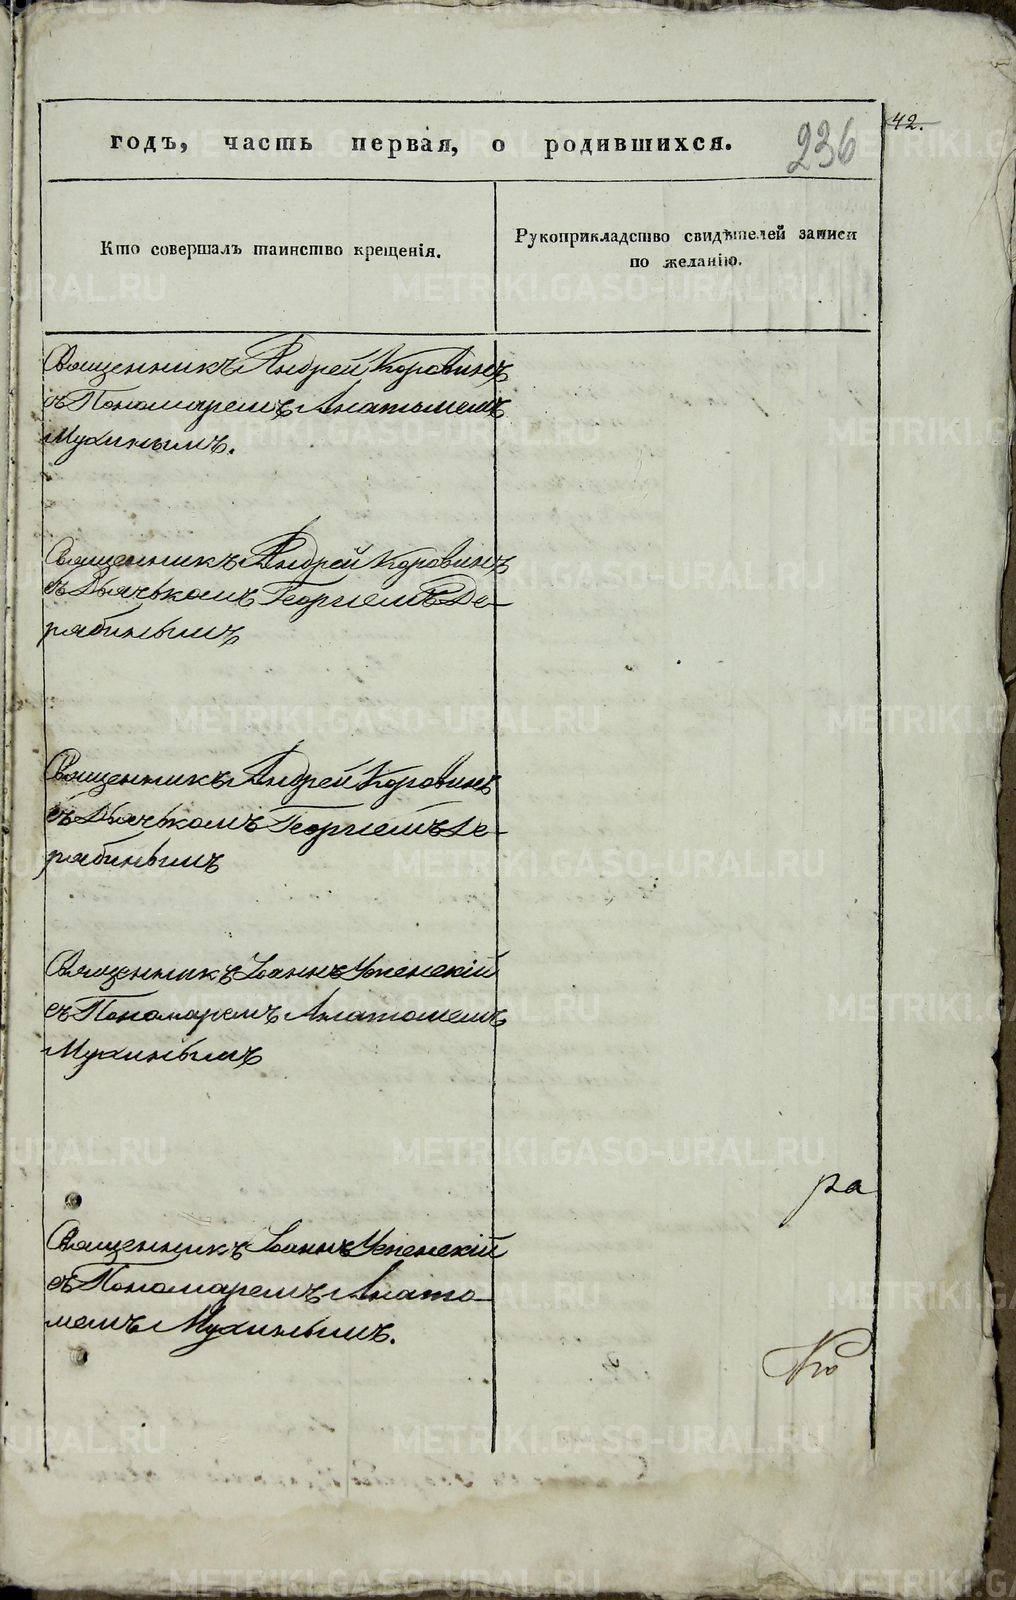 42.
годъ, часть первая, о родившихся.
236
Кто совершалъ таинство крещенія.
Рукоприкладство свидѣтелей записи
по желанію.
Священникъ Андрей Коровинъ
съ Пономаремъ
Мухинымъ.
Священникъ Андрей Коровинъ
съ Дьячькомъ Георгіемъ Де-
рябинымъ
Священникъ Андрей Коровинъ
съ Дьячькомъ Георгіемъ Де-
рябинымъ
Священникъ Іоаннъ Успенскій
съ Пономаремъ
Мухинымъ
ра
Священникъ Іоаннъ Успенскій
съ Пономаремъ
Мухинымъ.
Ко
METRIKI.GASO-URAL.RU